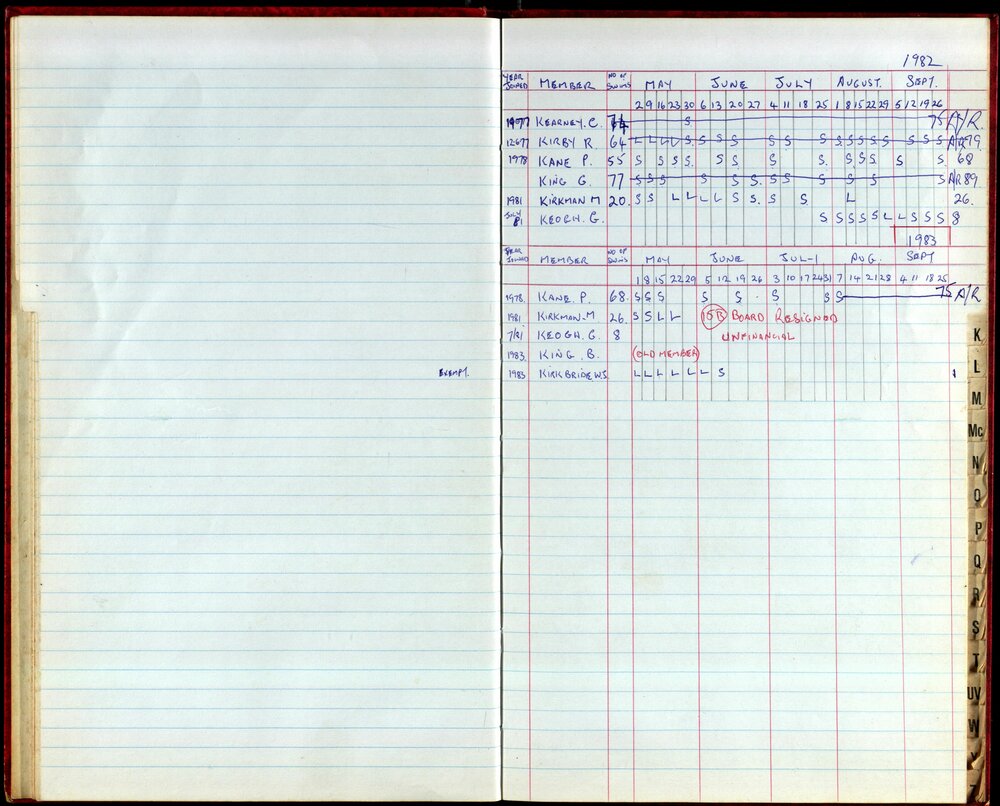 1982
YEAR JOINED MEMBER NO OF SWIMS MAY JUNE JULY AUGUST. SEPT.
2 9 16 23 30 6 13 20 27 4 11 18 25 1 8 15 22 29 5 12 19 26
KEARNEY. C. S 75 A/R
KIRBY R. 64 L L L L S S S S S S S S S S S S S S S A/R 79.
1978 KANE P. 55 S S S S S S S S. S S S S S. 68
KING G. 77 S S S S S S. S S S S S S A/R 89.
1981 KIRKMAN M 20. S S L L L L S S. S L 26.
JULY 81 KEOGH. G. S S S S S L L S S S 8
1983
YEAR JOINED MEMBER NO OF SWIMS MAY JUNE JUL-1 AUG. SEPT
1 8 15 22 29 5 12 19 26 3 10 17 24 31 7 14 21 28 4 11 18 25
1978. KANE. P. 68. S S S S S S S S 75 A/R
1981 KIRKMAN-M 26. S S L L 15B BOARD RESIGNED
7/81 KEOGH. G. 8 UNFINANCIAL
1983. KING. B. (OLD MEMBER)
EXEMPT. 1983 KIRKBRIDE W.S. L L L L L L S 1
K
L
M
Mc
N
O
P
Q
R
S
T
UV
W